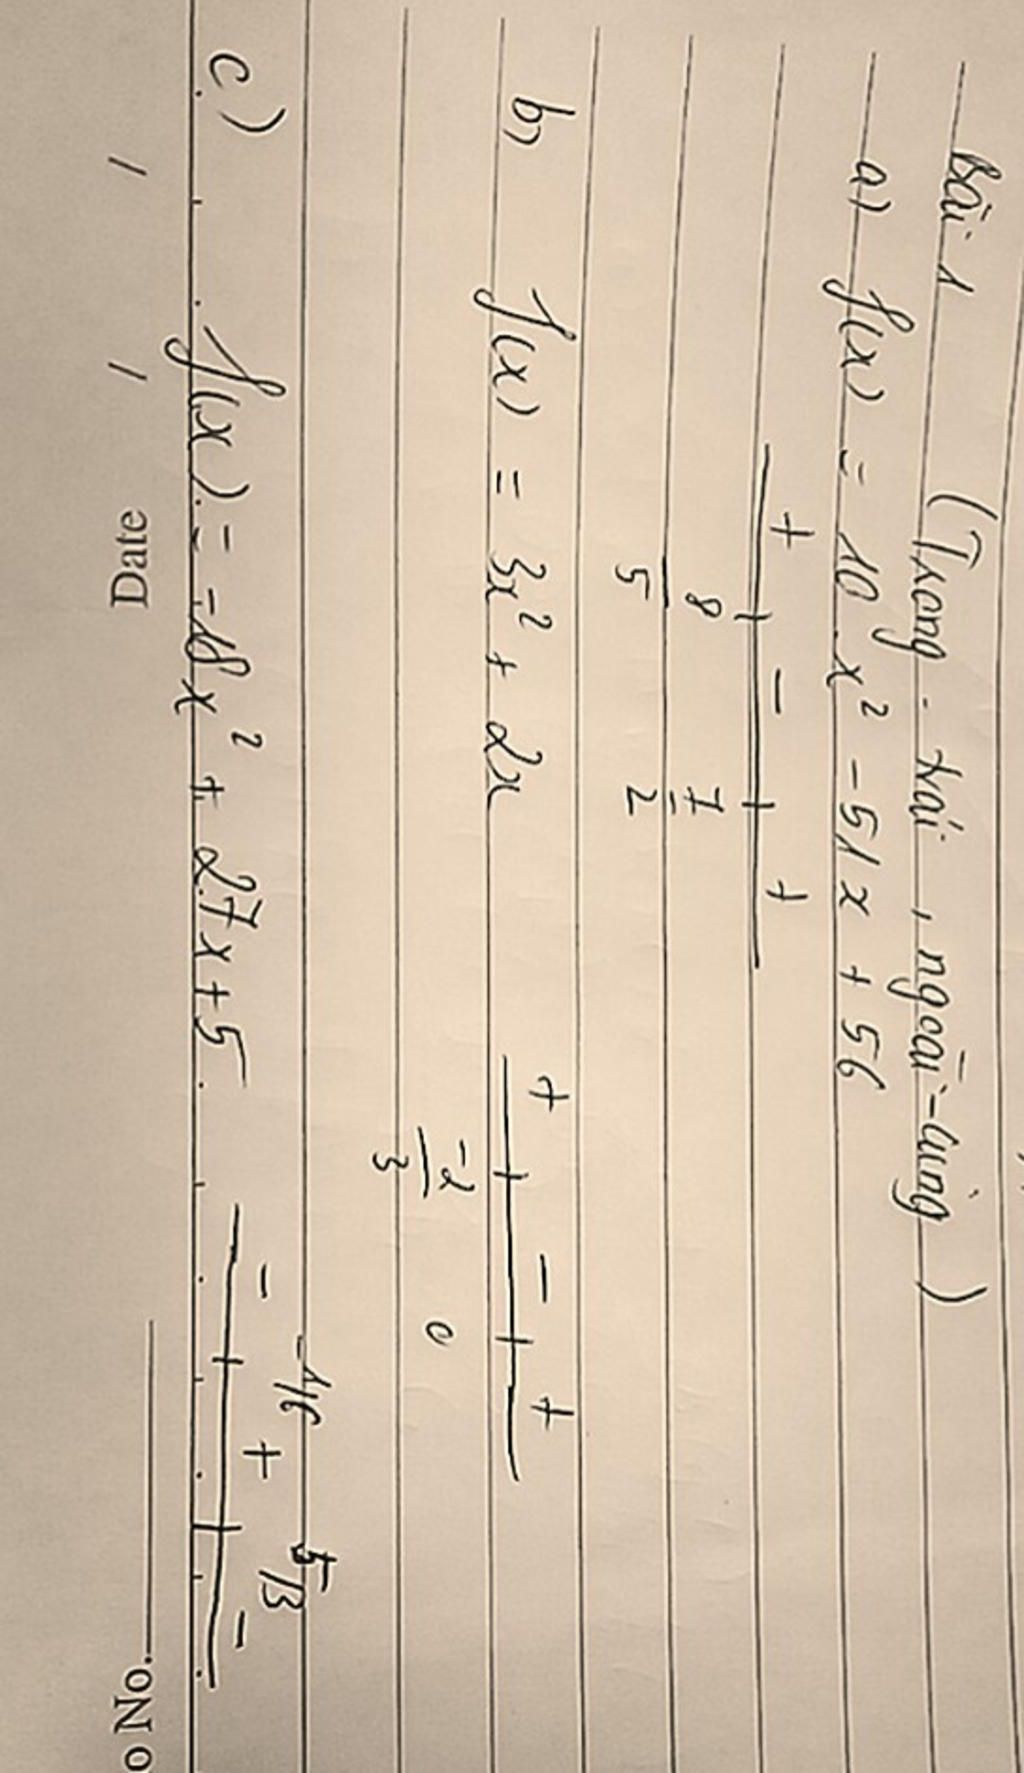 Bài 1 (Trong - trái, ngoài - cùng)
a) f(x) = 10x² - 51x + 56
+ - +
8/5 7/2
b) f(x) = 3x² + 2x + - +
-2/3 0
-1/6 5/3
c) f(x) = -18x² + 27x + 5 - + -
/ / Date o No.